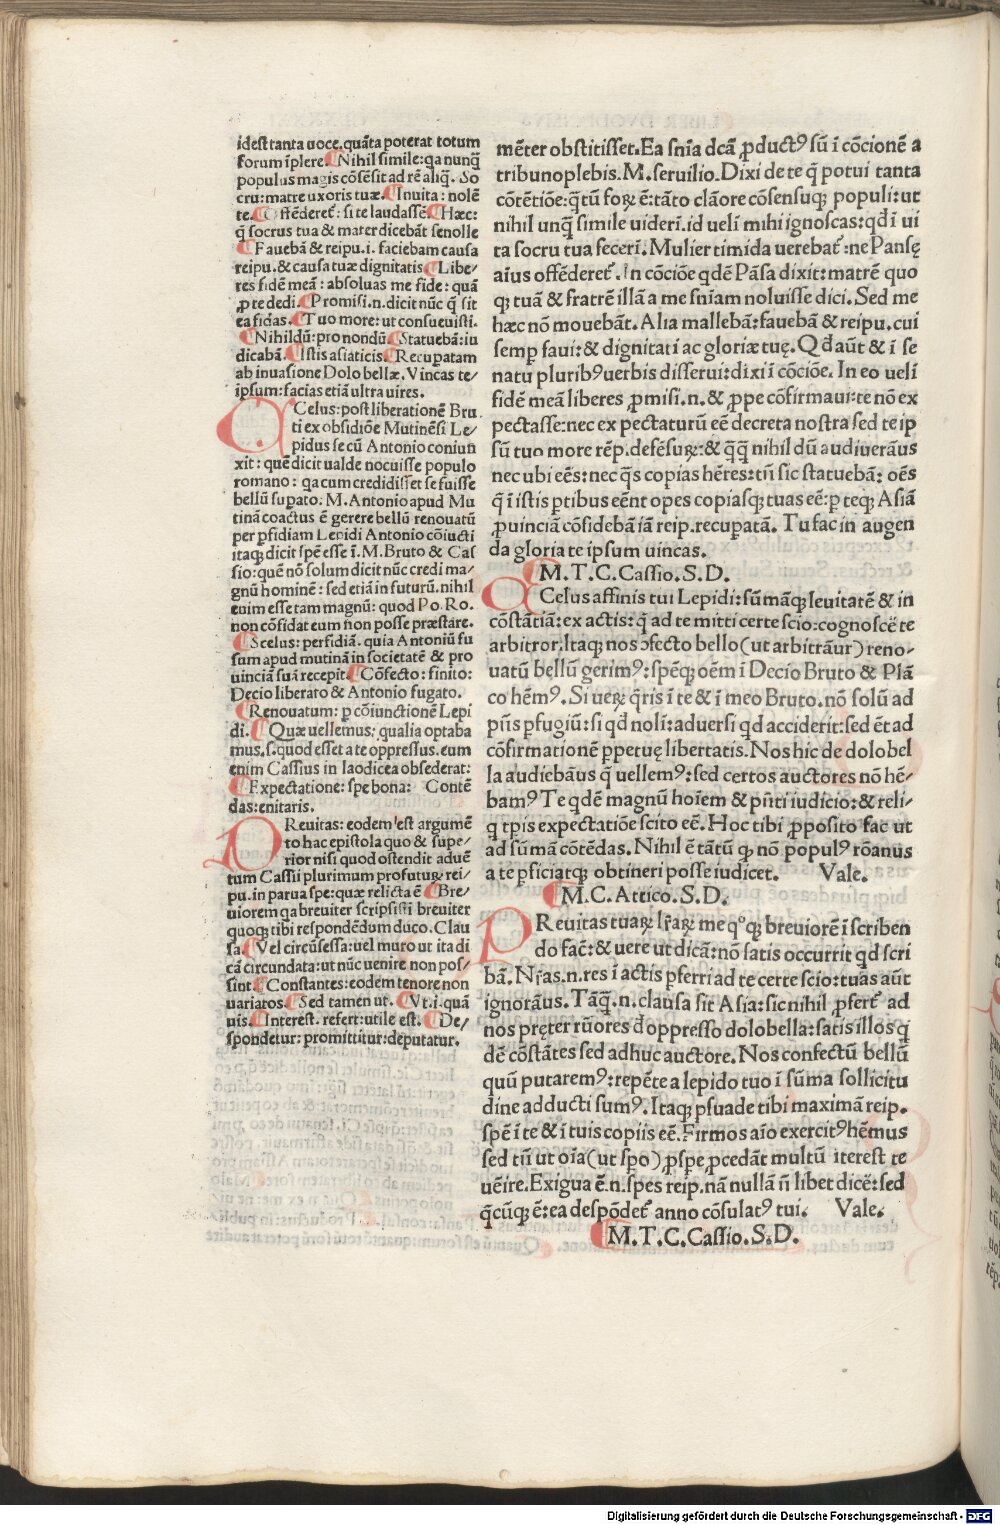 idest tanta uoce. quãta poterat totum
forum ĩplere. Nihil simile: qa nunq̃
populus magis cõsẽsit ad rẽ aliq̃. So
cru: matre uxoris tuæ. Inuita: nolẽ
te. Offẽderet᷑: si te laudassẽ Hæc:
q̃ socrus tua & mater dicebãt se nolle
Fauebã & reipu. i. faciebam causa
reipu. & causa tuæ dignitatis Libe⸗
res fidẽ meã: absoluas me fide: quã
ꝓ te dedi. Promisi. n. dicit nũc q̃ sit
ea fides. Tuo more: ut consueuisti.
Nihildũ: pro nondũ Statuebã: iu
dicabã. Istis asiaticis. Recupatam
ab inuasione Dolobellæ. Vincas te⸗
ipsum: facias etiã ultra uires.
Celus: post liberationẽ Bru
ti ex obsidiõe Mutinẽsi Le⸗
pidus se cũ Antonio coniun
xit: quẽ dicit ualde nocuisse populo
romano: qa cum credidisset se fuisse
bellũ supato: M. Antonio apud Mu
tinã coactus ẽ gerere bellũ renouatũ
per pfidiam Lepidi Antonio cõiucti
itaqꝫ dicit spẽ esse ĩ. M. Bruto & Cas
sio: quẽ nõ solum dicit nũc credi ma⸗
gnũ hominẽ: sed etiã in futurũ. nihil
enim esse tam magnũ: quod Po. Ro.
non cõfidat eum non posse præstare.
Scelus: perfidiã. quia Antoniũ fu
sum apud mutinã in societatẽ & pro
uinciã suã recepit. Cõfecto: finito:
Decio liberato & Antonio fugato.
Renouatum: p cõiunctionẽ Lepi
di. Quæ uellemus: qualia optaba
mus. s. quod esset a te oppressus. eum
enim Cassius in laodicea obsederat:
Expectatione: spe bona: Contẽ
das: enitaris.
Reuitas: eodem est argumẽ
to hac epistola quo & supe⸗
rior nisi quod ostendit aduẽ
tum Cassii plurimum profuturꝫ rei⸗
pu. in parua spe: quæ relicta ẽ Bre⸗
uiorem qa breuiter scripsisti breuiter
quoqꝫ tibi respondẽdum duco. Clau
sa. Vel circũsessa: uel muro ut ita di
cã circundata: ut nũc uenire non pos⸗
sint Constantes: eodem tenore non
uariatos. Sed tamen ut. Vt. i. quã
uis. Interest. refert: utile est. De⸗
spondetur: promittitur: deputatur.
mẽter obstitisset. Ea snĩa dcã ꝓductꝰ sũ ĩ cõcionẽ a
tribuno plebis. M. seruilio. Dixi de te q̃ potui tanta
cõtẽtiõe: q̃tũ forꝫ ẽ: tãto clãore cõsensuqꝫ populi: ut
nihil unq̃ simile uiderĩ. id ueli mihi ignoscas: qđ ĩ ui
ta socru tua fecerĩ. Mulier timida uerebat᷑: ne Pansę
aĩus offẽderet᷑. In cõciõe qdẽ Pãsa dixit: matrẽ quo
qꝫ tuã & fratrẽ illã a me snĩam noluisse dici. Sed me
hæc nõ mouebãt. Alia mallebã: fauebã & reipu. cui
semp faui: & dignitati ac gloriæ tuę. Qđ aũt & ĩ se
natu pluribꝰ uerbis disserui: dixi ĩ cõciõe. In eo uelĩ
fidẽ meã liberes ꝓmisi. n. & ꝓpe cõfirmaui: te nõ ex
pectasse: nec expectaturũ eẽ decreta nostra sed te ip
sũ tuo more rẽp. defẽsurꝫ: & q̃q̃ nihil dũ audiuerãus
nec ubi eẽs: nec q̃s copias hẽres: tñ sic statuebã: oẽs
q̃ ĩ istis ptibus eẽnt opes copiasqꝫ tuas eẽ: p teqꝫ Asiã
ꝓuinciã cõfidebã iã reip. recupatã. Tu fac in augen
da gloria te ipsum uincas.
M. T. C. Cassio. S. D.
Celus affinis tui Lepidi: sũmãqꝫ leuitatẽ & in
cõstãtiã: ex actis: q̃ ad te mitti certe scio: cognoscẽ te
arbitror. Itaqꝫ nos ɔfecto bello (ut arbitrãur) reno⸗
uatũ bellũ gerimꝰ: spẽqꝫ oẽm ĩ Decio Bruto & Plã
co hẽmꝰ. Si uerꝫ q̃ris ĩ te & ĩ meo Bruto. nõ solũ ad
pñs pfugiũ: si qđ noli: aduersi qd acciderit: sed ẽt ad
cõfirmationẽ ppetuę libertatis. Nos hic de dolobel
la audiebãus q̃ uellemꝰ: sed certos auctores nõ hẽ⸗
bamꝰ Te qdẽ magnũ hoĩem & pñti iudicio: & reli⸗
q tꝑis expectatiõe scito eẽ. Hoc tibi ꝓposito fac ut
ad sũmã cõtẽdas. Nihil ẽ tãtũ qꝫ nõ populꝰ rõanus
a te pfici atqꝫ obtineri posse iudicet. Vale.
M. C. Attico. S. D.
Reuitas tuarꝫ lr̃arꝫ me qºqꝫ breuiorẽ ĩ scriben
do fac̃: & uere ut dicã: nõ satis occurrit qđ scri
bã. Nr̃as. n. res ĩ actis pferri ad te certe scio: tuas aũt
ignorãus. Tãq̃. n. clausa sit Asia: sic nihil pfert᷑ ad
nos pręter rũores đ oppresso dolobella: satis illos q
dẽ cõstãtes sed adhuc auctore. Nos confectũ bellũ
quũ putaremꝰ: repẽte a lepido tuo ĩ sũma sollicitu
dine adducti sumꝰ. Itaqꝫ psuade tibi maximã reip.
spẽ ĩ te & ĩ tuis copiis eẽ. Firmos aĩo exercitꝰ hẽmus
sed tñ ut oĩa (ut spo) ꝓspe ꝓcedãt multũ ĩterest te
uẽire. Exigua ẽ. n. spes reip. nã nullã ñ libet dicẽ: sed
q̃cũqꝫ ẽ: ea despõdet᷑ anno cõsulatꝰ tui. Vale.
M. T. C. Cassio. S. D.
Digitalisierung gefördert durch die Deutsche Forschungsgemeinschaft - DFG